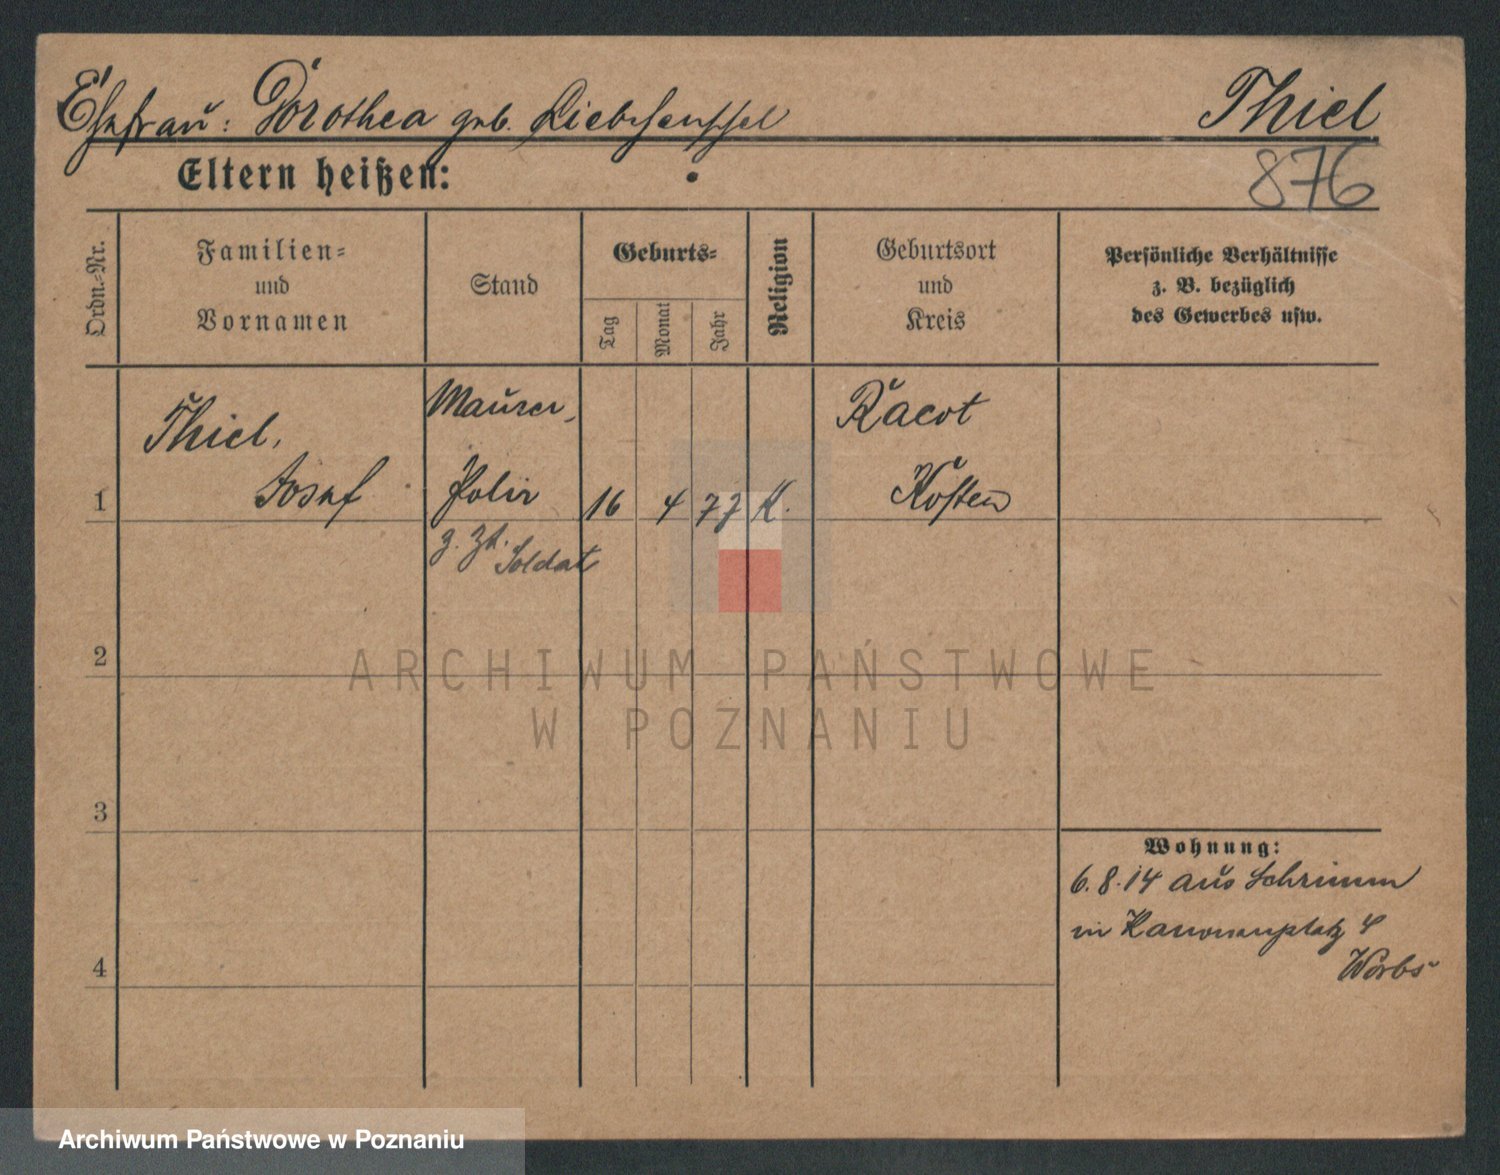 Ehefrau: Dorothea geb. Thiel
Eltern heißen:
876
Ordn.-Nr.
Familien-
und
Vornamen
Stand
Geburts-
Tag
Monat
Jahr
Religion
Geburtsort
und
Kreis
Persönliche Verhältnisse
z. B. bezüglich
des Gewerbes usw.
1
Thiel,
Josef
Maurer,
Polir
z. Zt. Soldat
16
4
77
K.
Racot
Kosten
2
3
4
Wohnung:
6.8.14 aus Schrimm
in Kanonenplatz 4
Worbs
ARCHIWUM PAŃSTWOWE
W POZNANIU
Archiwum Państwowe w Poznaniu